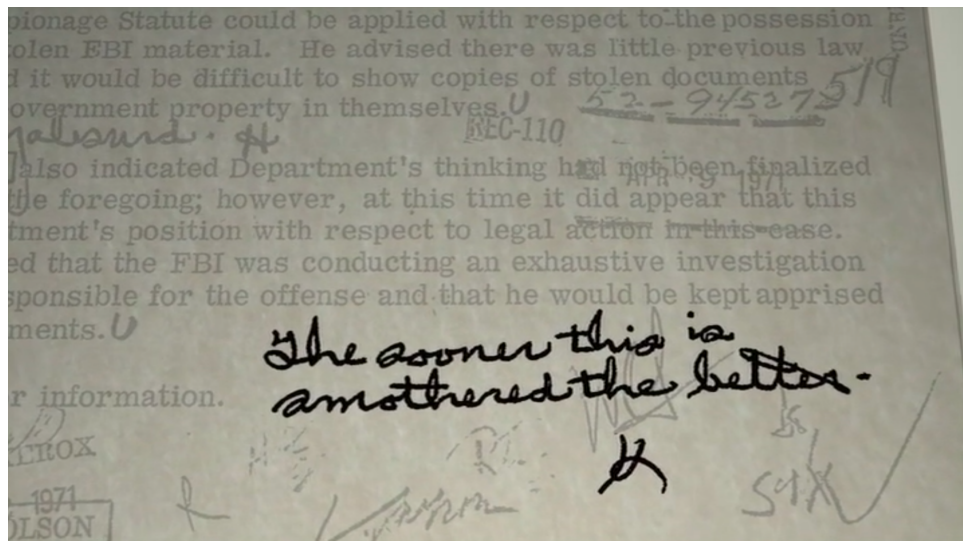 pionage Statute could be applied with respect to the possession
olen EBI material. He advised there was little previous law
d it would be difficult to show copies of stolen documents 519
overnment property in themselves. U 52-94527
REC-110
also indicated Department's thinking had not been finalized
APR 9 1971
the foregoing; however, at this time it did appear that this
tment's position with respect to legal action in this case.
ed that the FBI was conducting an exhaustive investigation
sponsible for the offense and that he would be kept apprised
ments. U
The sooner this is
smothered the better.
r information.
H
XEROX
1971
OLSON